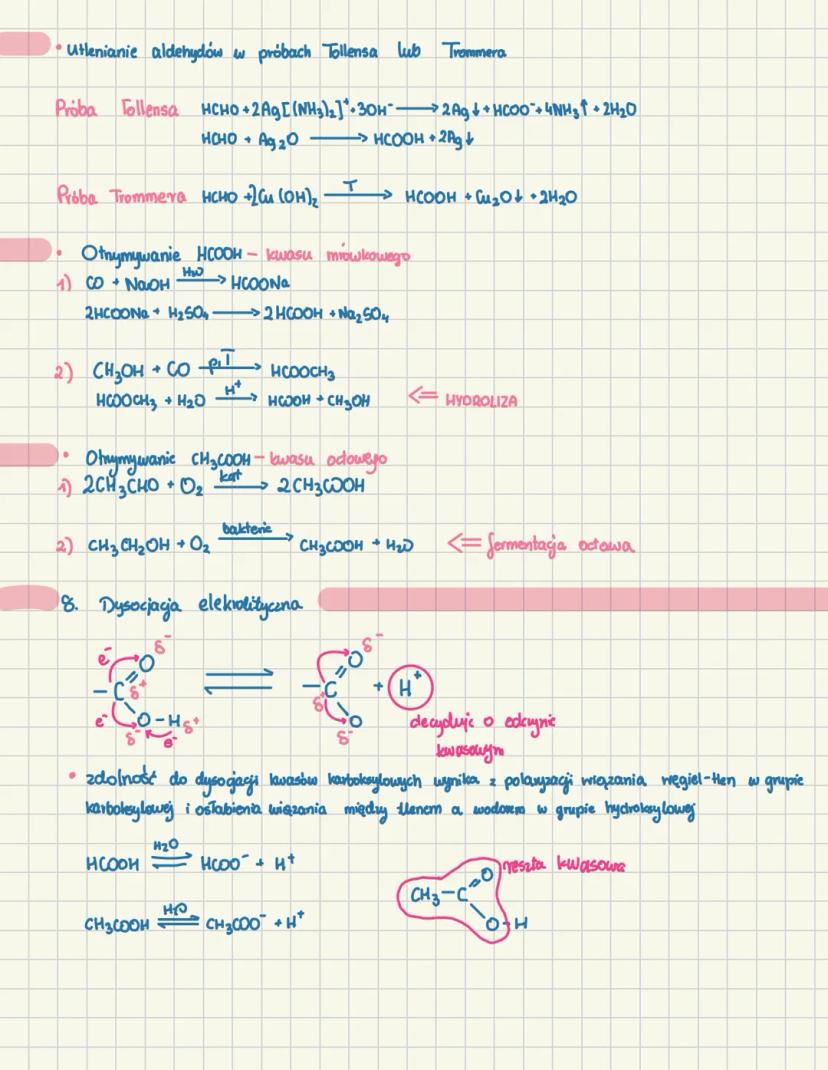 • Utlenianie aldehydów w próbach Tollensa lub Trommera
Próba Tollensa HCHO + 2Ag[(NH₃)₂]⁺ + 3OH⁻ ⟶ 2Ag↓ + HCOO⁻ + 4NH₃↑ + 2H₂O
HCHO + Ag₂O ⟶ HCOOH + 2Ag↓
Próba Trommera HCHO + 2Cu(OH)₂ T⟶ HCOOH + Cu₂O↓ + 2H₂O
• Otrzymywanie HCOOH – kwasu mrówkowego
1) CO + NaOH H₂O⟶ HCOONa
2HCOONa + H₂SO₄ ⟶ 2HCOOH + Na₂SO₄
2) CH₃OH + CO p,T⟶ HCOOCH₃
HCOOCH₃ + H₂O H⁺⟶ HCOOH + CH₃OH ⇐ HYDROLIZA
• Otrzymywanie CH₃COOH – kwasu octowego
1) 2CH₃CHO + O₂ kat⟶ 2CH₃COOH
2) CH₃CH₂OH + O₂ bakterie⟶ CH₃COOH + H₂O ⇐ fermentacja octowa
8. Dysocjacja elekrolityczna
e⁻ O δ⁻ ⇌ O δ⁻
– C δ⁺ – C δ⁺ + H⁺
e⁻ O – H δ⁺ O decyduje o odczynie
δ⁻ e⁻ δ⁻ kwasowym
• zdolność do dysocjacji kwasów karboksylowych wynika z polaryzacji wiązania węgiel-tlen w grupie
karboksylowej i osłabienia wiązania między tlenem a wodorem w grupie hydroksylowej
HCOOH H₂O⇌ HCOO⁻ + H⁺
CH₃COOH H₂O⇌ CH₃COO⁻ + H⁺
reszta kwasowa
O
CH₃ – C
O – H